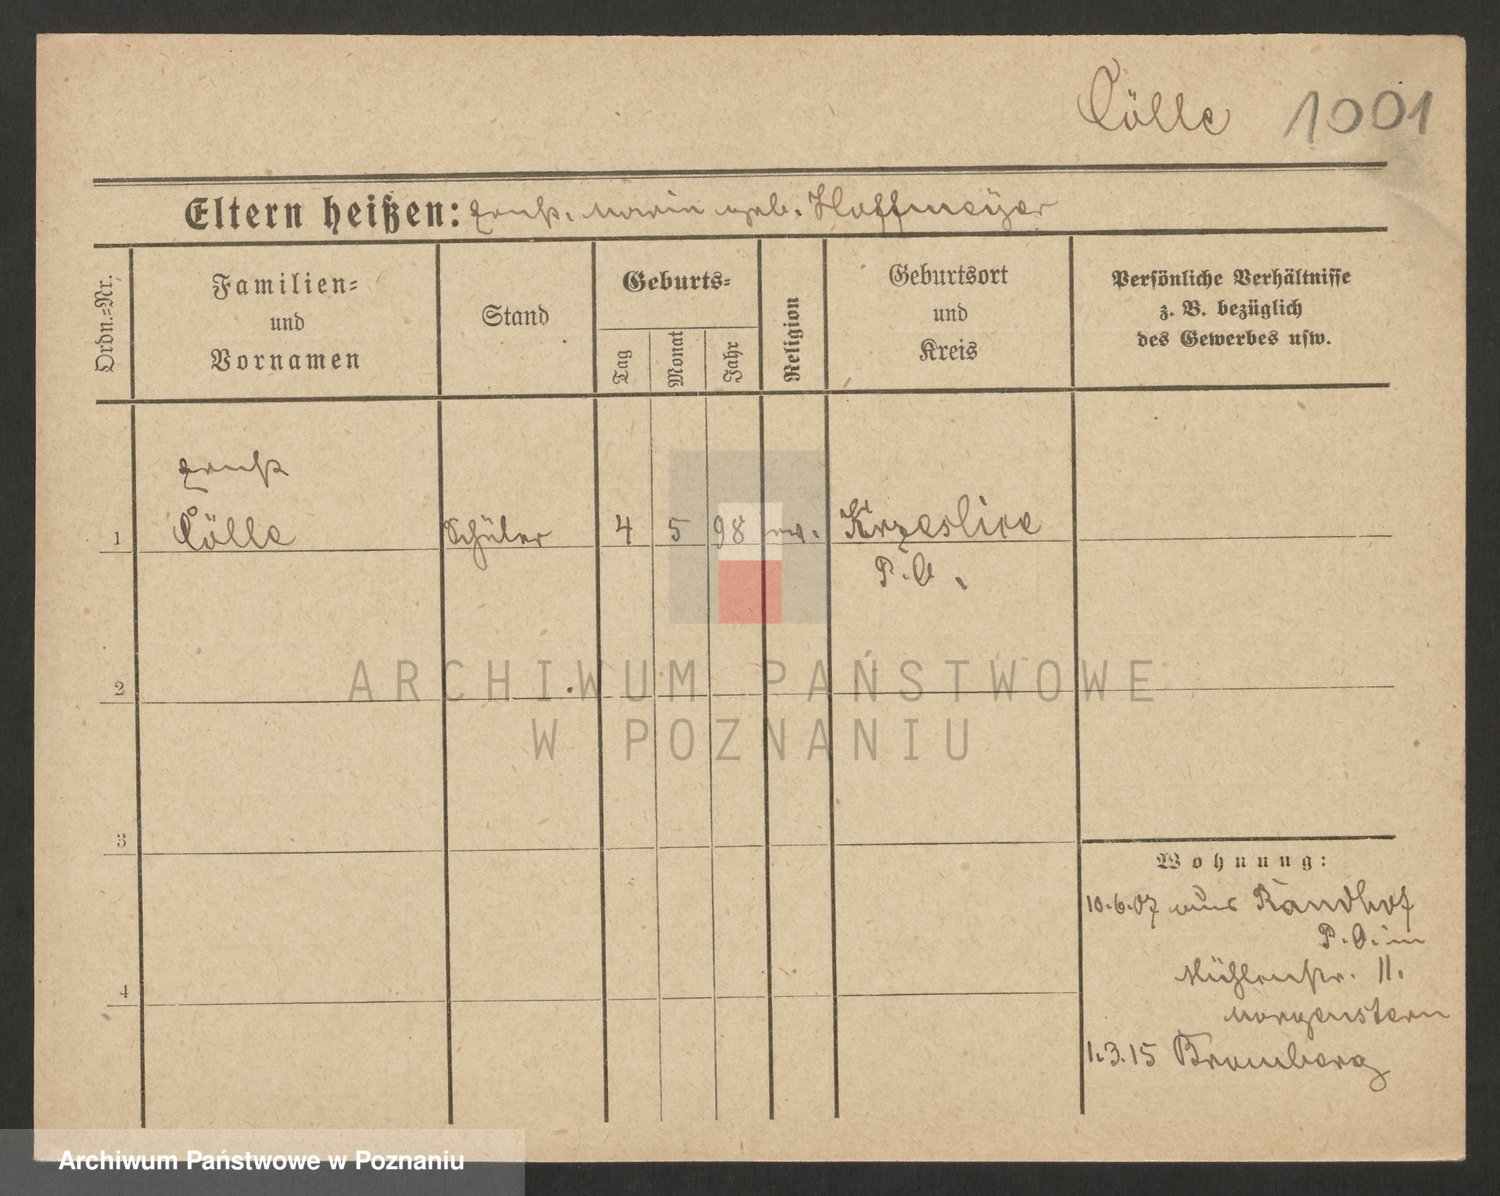 Cölle 1001
Eltern heißen: Ernst, Marie geb. Hoffmeyer
Ordn.=Nr.
Familien=
und
Vornamen
Stand
Geburts=
Tag
Monat
Jahr
Religion
Geburtsort
und
Kreis
Persönliche Verhältnisse
z. B. bezüglich
des Gewerbes usw.
Ernst
1 Cölle Schüler 4 5 98 ev. Krzeslice
P. O.
2
3
4
Wohnung:
10.6.07 aus Randhof
P. O. in
Mühlenstr. 11.
Morgenstern
1.3.15 Bromberg
ARCHIWUM PAŃSTWOWE
W POZNANIU
Archiwum Państwowe w Poznaniu